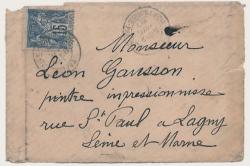 15
Monsieur
Léon Gausson
peintre impressionniste
rue St Paul a Lagny
Seine et Marne